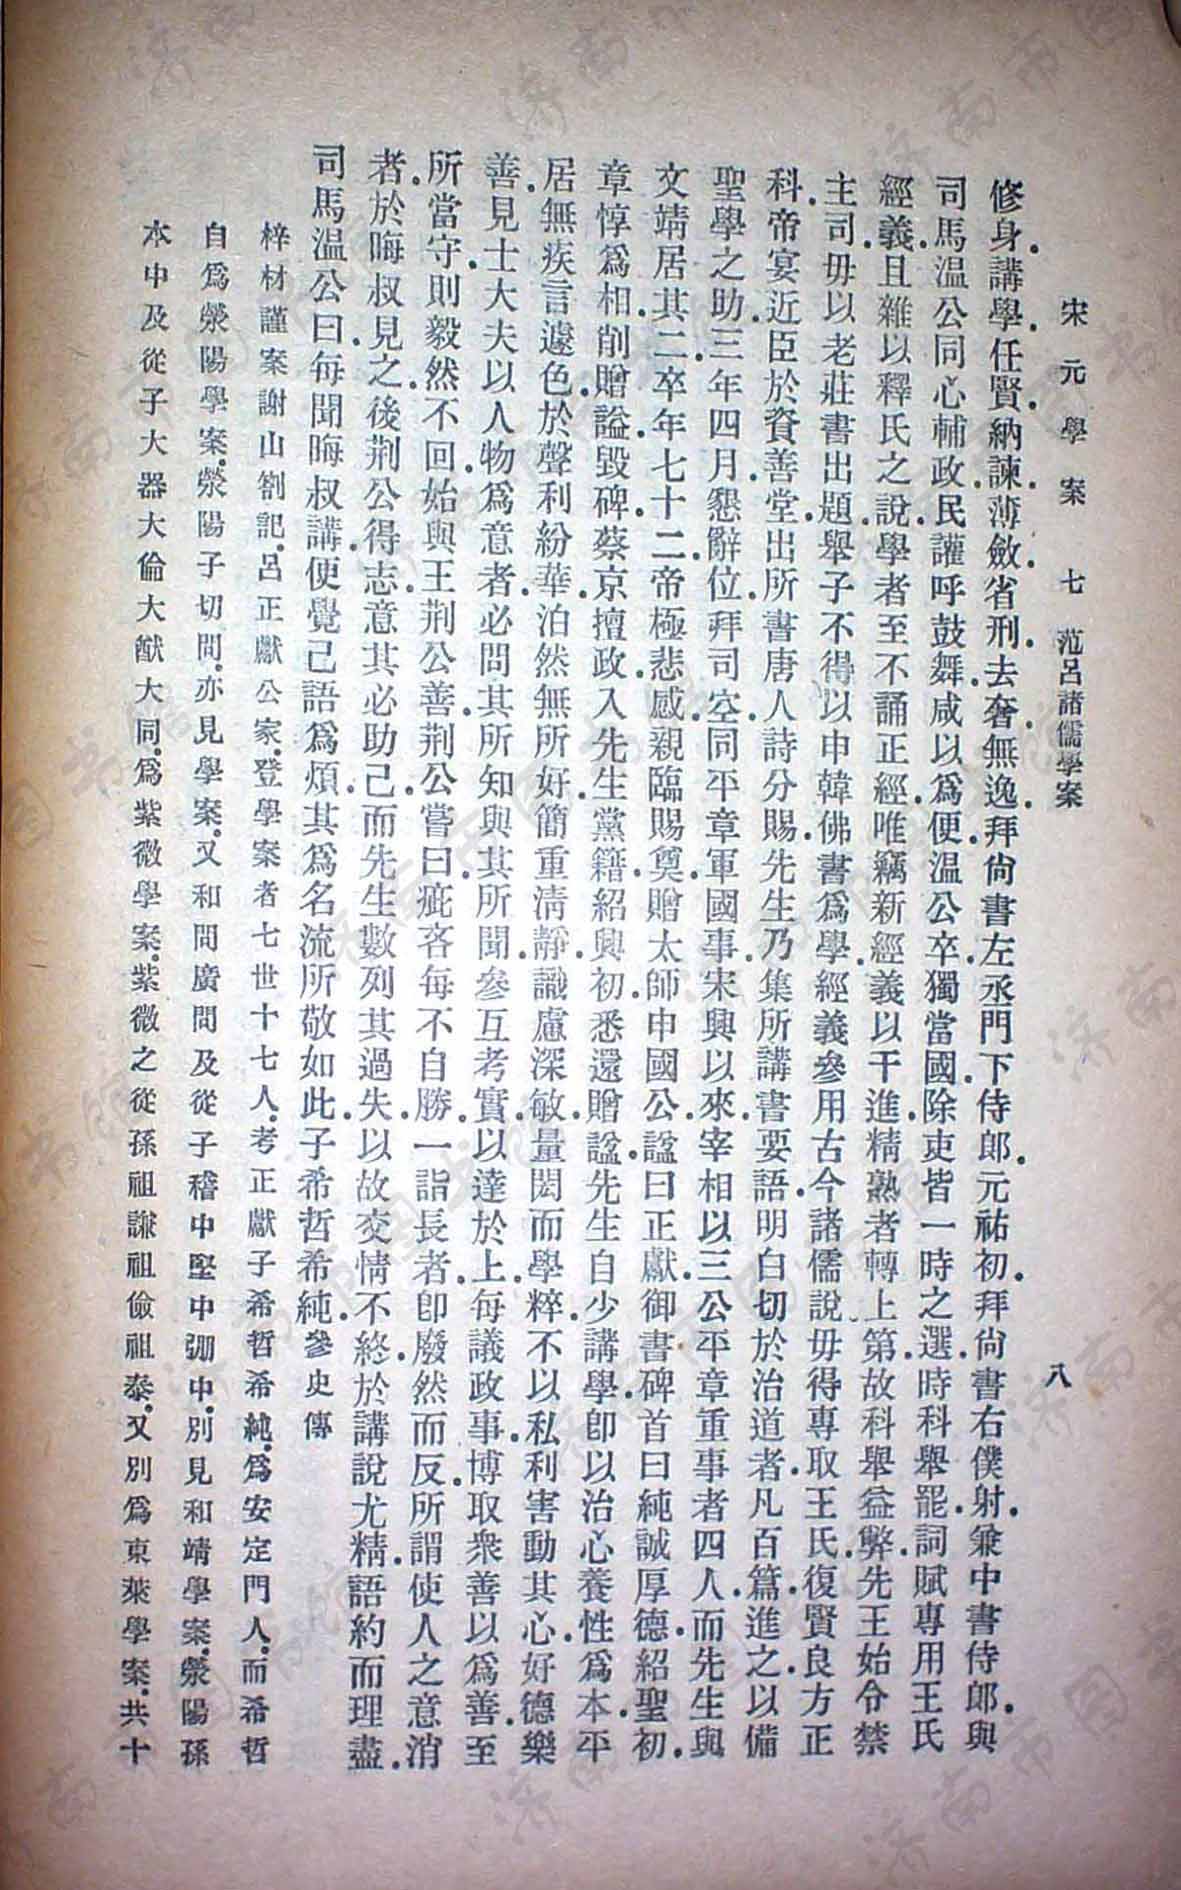 宋元學案 七 范呂諸儒學案 八
修身.講學.任賢.納諫.薄斂.省刑.去奢.無逸.拜尙書左丞門下侍郎.元祐初.拜尙書右僕射.兼中書侍郎.與
司馬溫公同心輔政.民讙呼鼓舞.咸以爲便.溫公卒.獨當國.除吏皆一時之選.時科舉罷詞賦.專用王氏
經義.且雜以釋氏之說.學者至不誦正經.唯竊新經義以干進.精熟者轉上第.故科舉益弊.先王始令禁
主司.毋以老莊書出題.舉子不得以申韓佛書爲學.經義參用古今諸儒說.毋得專取王氏.復賢良方正
科.帝宴近臣於資善堂.出所書唐人詩分賜.先生乃集所講書要語明白切於治道者.凡百篇進之.以備
聖學之助.三年四月.懇辭位.拜司空.同平章軍國事.宋興以來.宰相以三公平章重事者四人.而先生與
文靖居其二.卒年七十二.帝極悲感.親臨賜奠.贈太師申國公.諡曰正獻.御書碑首曰純誠厚德.紹聖初.
章惇爲相.削贈諡.毀碑.蔡京擅政.入先生黨籍.紹興初.悉還贈諡.先生自少講學.卽以治心養性爲本.平
居無疾言遽色.於聲利紛華.泊然無所好.簡重清靜.識慮深敏.量閎而學粹.不以私利害動其心.好德樂
善.見士大夫以人物爲意者.必問其所知.與其所聞.參互考實.以達於上.每議政事.博取衆善以爲善.至
所當守.則毅然不回.始與王荆公善.荆公嘗曰.疵吝每不自勝.一詣長者.卽廢然而反.所謂使人之意消
者.於晦叔見之.後荆公得志.意其必助己.而先生數列其過失.以故交情不終.於講說尤精.語約而理盡.
司馬溫公曰.每聞晦叔講.便覺己語爲煩.其爲名流所敬如此.子希哲希純.參史傳
梓材謹案.謝山劄記.呂正獻公家.登學案者七世十七人.考正獻子希哲希純.爲安定門人.而希哲
自爲滎陽學案.滎陽子切問.亦見學案.又和問廣問及從子稽中堅中弸中.別見和靖學案.滎陽孫
本中及從子大器大倫大猷大同.爲紫微學案.紫微之從孫祖謙祖儉祖泰.又別爲東萊學案.共十